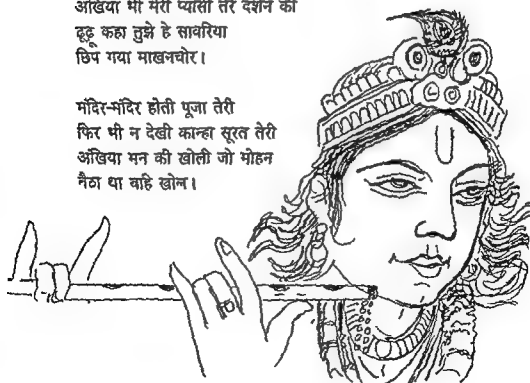 अंखिया भी मेरी प्यासी तेरे दर्शन की
ढूढ़ू कहा तुझे हे सावरिया
छिप गया माखनचोर।
मंदिर-मंदिर होती पूजा तेरी
फिर भी न देखी कान्हा सूरत तेरी
अंखिया मन की खोली जो मोहन
बैठा था वहि खोल।